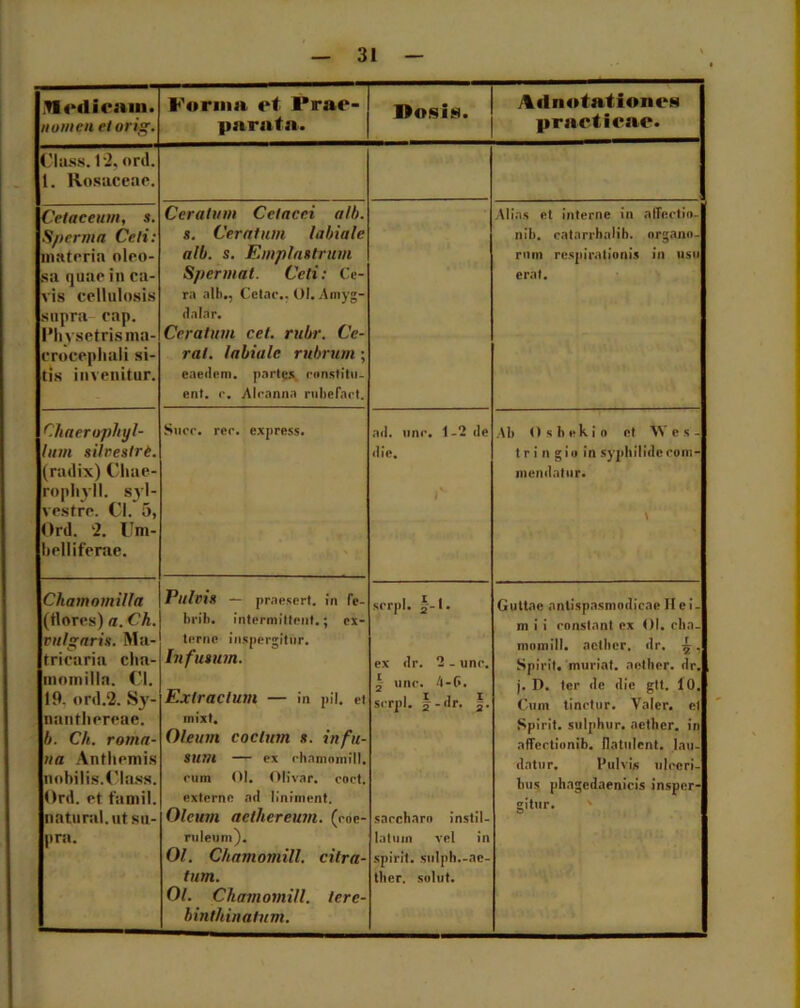 — 31 —
Medicam.
nomen et orig.
Forma et Prae-
parata.
Dosis.
Adnotationes
practicae.
Class. 12, ord.
1. Rosaceae.
Cetaceum, s.
Sperma Ceti:
materia oleo-
sa quae in ca-
vis cellulosis
supra cap.
Physetrisma-
crocephali si-
tis invenitur.
Ceratum Cetacei alb.
s. Ceratum labiale
alb. s. Emplastrum
Spermat. Ceti: Ce-
ra alb., Cetac., Ol. Amyg-
dalar.
Ceratum cet. rubr. Ce-
rat. labiale rubrum;
eaedem. partes constitu-
ent. c. Alcanna rubefact.
Alias et interne in affectio-
nib. catarrhalib. organo-
rum respirationis in usu
erat.
Chaerophyl-
lum silvestre.
(radix) Chae-
rophyll. syl-
vestre. Cl. 5,
Ord. 2. Um-
belliferae.
Succ. rec. express.
ad. unc. 1-2 de
die.
Ab Osbekio et Wes-
tringio in syphilide com-
mendatur.
Chamomilla
(flores) a. Ch.
vulgaris. Ma-
tricaria cha-
momilla. Cl.
19. ord.2. Sy-
nanthereae.
b. Ch. roma-
na Anthemis
nobilis. Class.
Ord. et famil.
natural. ut su-
pra.
Pulvis — praesert. in fe-
brib. intermittent.; ex-
terne inspergitur.
Infusum.
Extractum — in pil. et
mixt.
Oleum coctum s. infu-
sum — ex chamomill.
cum Ol. Olivar. coct.
externe ad liniment.
Oleum aethereum. (coe-
ruleum).
Ol. Chamomill. citra-
tum.
Ol. Chamomill. tere-
binthinatum.
scrpl. ½-1.
ex dr. 2 - unc.
½ unc. 4-6.
scrpl. ½ - dr. ½.
saccharo instil-
latum vel in
spirit. sulph.-ae-
ther. solut.
Guttae antispasmodicae Hei-
mii constant ex Ol. cha-
momill. aether. dr. ½,
Spirit. muriat. aether. dr.
j. D. ter de die gtt. 10.
Cum tinctur. Valer. et
Spirit. sulphur. aether. in
affectionib. flatulent. lau-
datur. Pulvis ulceri-
bus phagedaenicis insper-
gitur.